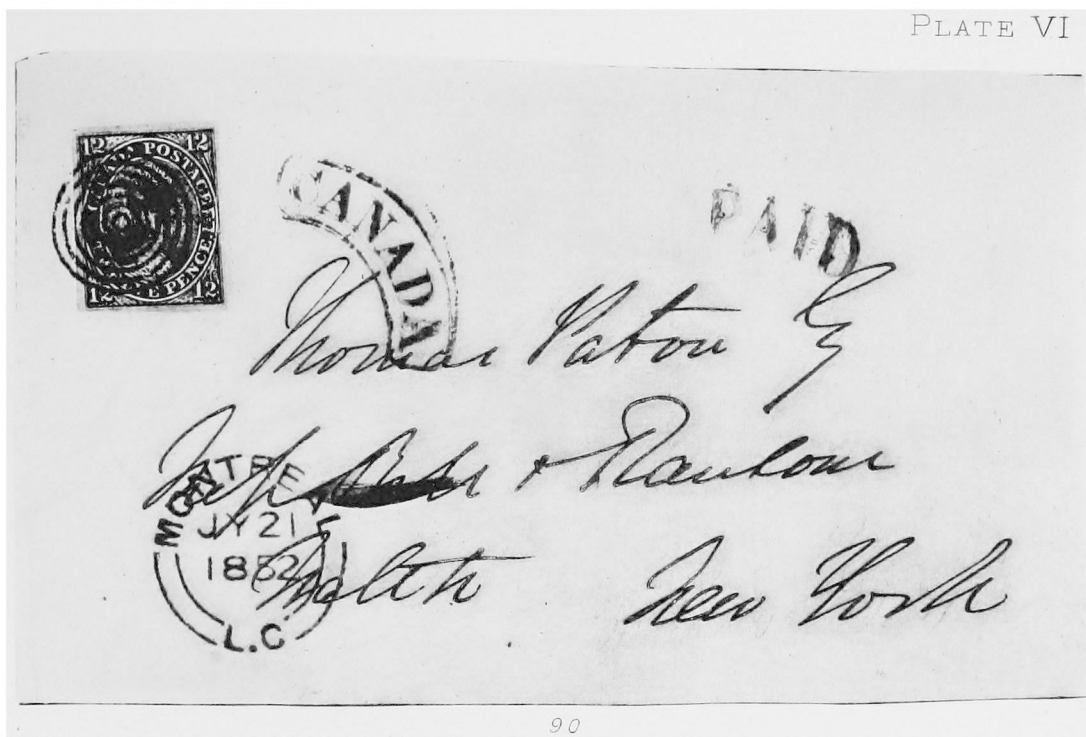 PLATE VI
12 12
CANADA POSTAGE
TWELVE PENCE
12 12
CANADA
PAID
Thomas Paton Esq
& Rankour
MONTREAL
JY 21
1852
L.C
New York
90